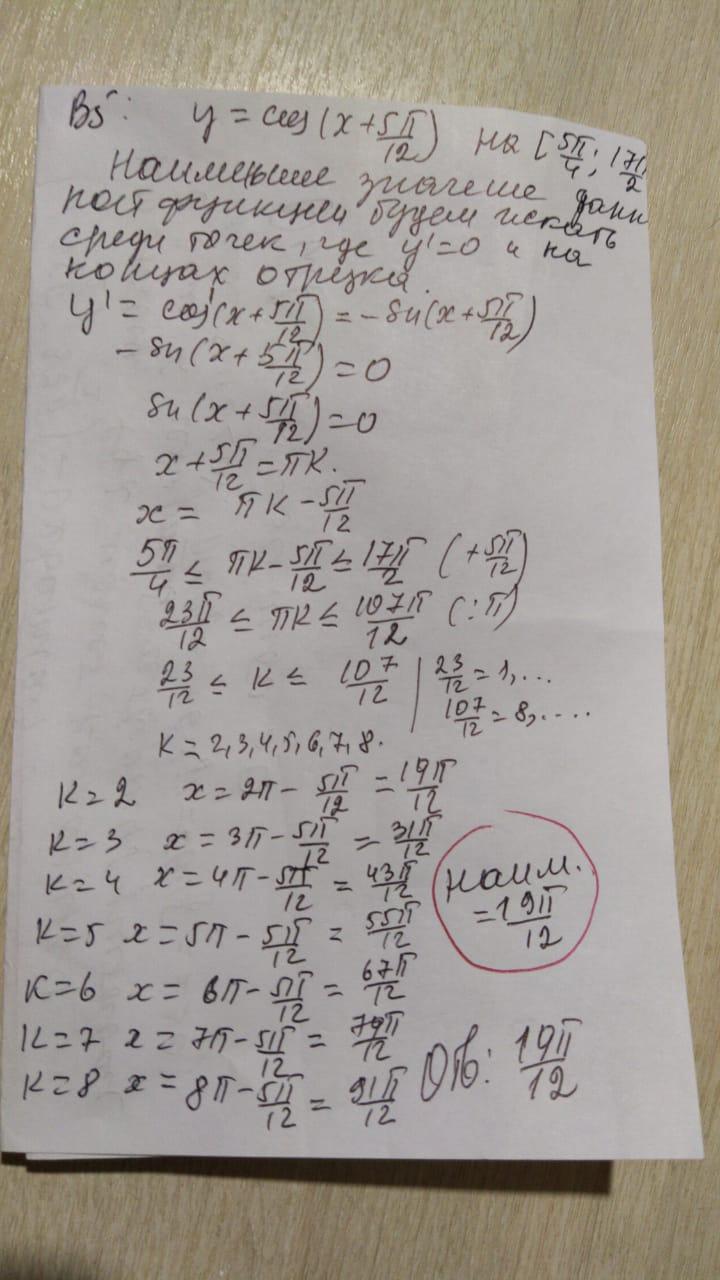 B5: y = cos(x+5π/12) на [5π/4; 17π/2
Наименьшее значение данн
ной функции будем искать
среди точек, где y'=0 и на
концах отрезка.
y' = cos'(x+5π/12) = -sin(x+5π/12)
-sin(x+5π/12) = 0
sin(x+5π/12) = 0
x+5π/12 = πk.
x = πk - 5π/12
5π/4 ≤ πk - 5π/12 ≤ 17π/2 (+5π/12)
23π/12 ≤ πk ≤ 107π/12 (:π)
23/12 ≤ k ≤ 107/12 | 23/12 = 1,...
107/12 = 8,....
k = 2,3,4,5,6,7,8.
k=2 x = 2π - 5π/12 = 19π/12
k=3 x = 3π - 5π/12 = 31π/12
k=4 x = 4π - 5π/12 = 43π/12
наим. = 19π/12
k=5 x = 5π - 5π/12 = 55π/12
k=6 x = 6π - 5π/12 = 67π/12
k=7 x = 7π - 5π/12 = 79π/12
k=8 x = 8π - 5π/12 = 91π/12
Отв: 19π/12